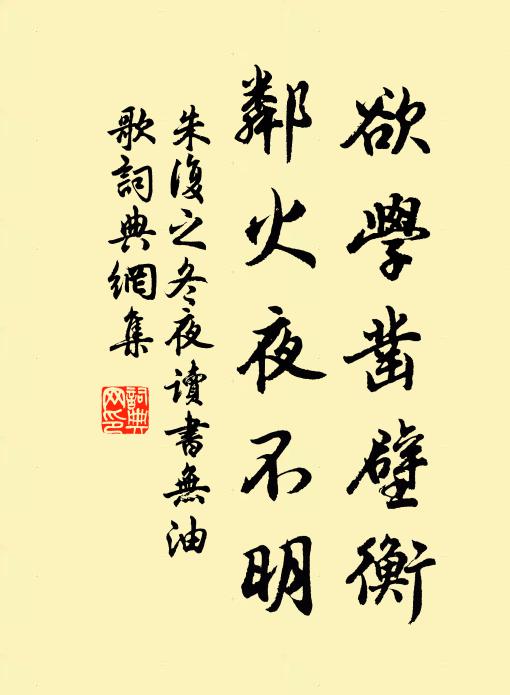 欲學凿壁衡
鄰火夜不明
朱復之冬夜讀書無油
歌詞典網集
詞典
网印